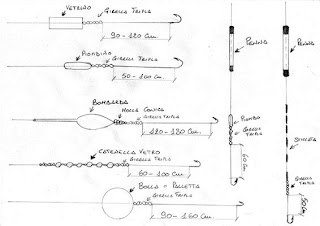 VETRINO
GIRELLA TRIPLA
90-120 Cm.
PIOMBINO
GIRELLA TRIPLA
50-100 Cm.
BOMBARDA
MOLLA CONICA
GIRELLA TRIPLA
120-180 Cm.
CATENELLA VETRO
GIRELLA TRIPLA
60-100 Cm.
BOLLA o PALLETTA
GIRELLA TRIPLA
90-160 Cm.
PENNA
PIOMBO
GIRELLA
TRIPLA
PENNA
GIRELLA
TRIPLA
50 Cm.